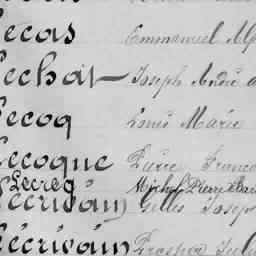 Lecas Emmanuel
Lechat Joseph André
Lecoq Louis Marie
Lecoque Pierre Franco
Lecreq Michel Pierre
Lécrivain Gilles Joseph
Lécrivain Prosper